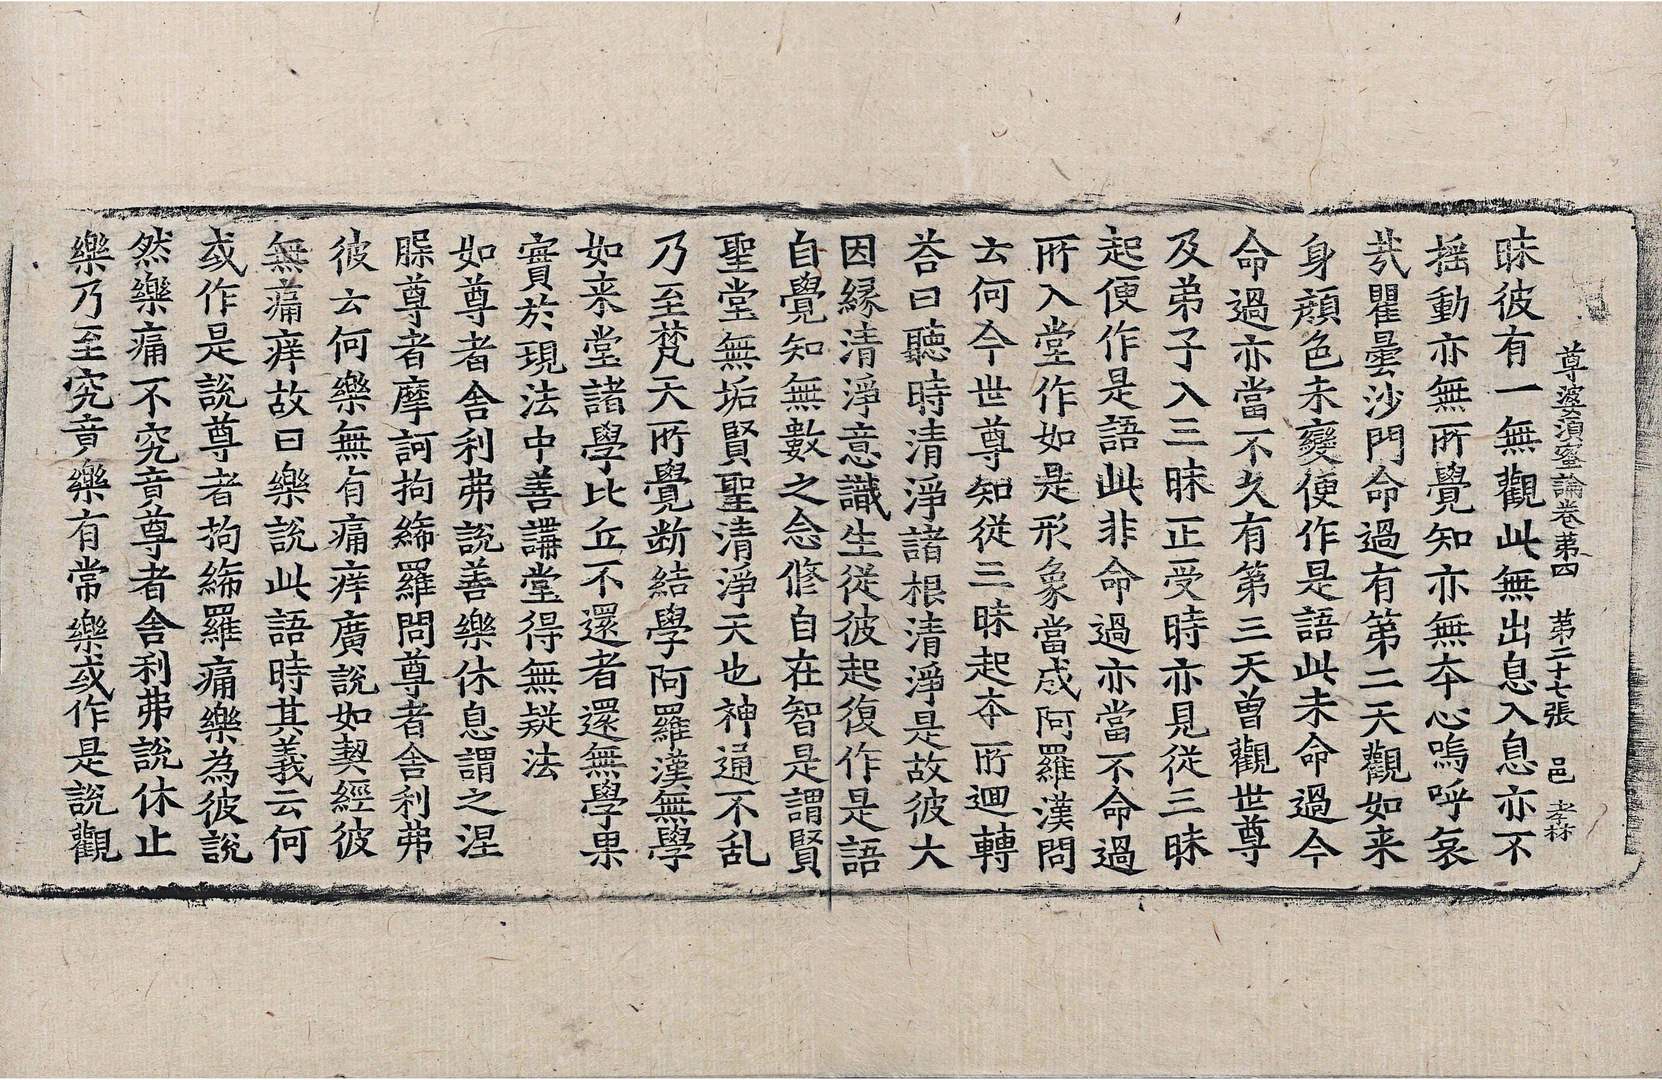 尊婆須蜜論卷第四　第二十七張　邑　孝林
昧彼有一無觀此無出息入息亦不
揺動亦無所覺知亦無夲心嗚呼哀
㢤瞿曇沙門命過有第二天觀如来
身顔色未變便作是語此未命過今
命過亦當不久有第三天曽觀世尊
及弟子入三昧正受時亦見從三昧
起便作是語此非命過亦當不命過
所入堂作如是形象當成阿羅漢問
云何今世尊知從三昧起夲所迴轉
荅曰聽時清淨諸根清淨是故彼大
因縁清淨意識生從彼起復作是語
自覺知無數之念修自在智是謂賢
聖堂無垢賢聖清淨天也神通不乱
乃至梵天所覺断結學阿羅漢無學
如来堂諸學比丘不還者還無學果
實於現法中善講堂得無疑法
如尊者舎利弗說善樂休息謂之涅
槃尊者摩訶拘絺羅問尊者舎利弗
彼云何樂無有痛痒廣說如契經彼
無痛痒故曰樂說此語時其義云何
或作是説尊者拘絺羅痛樂為彼説
然樂痛不究竟尊者舎利弗説休止
樂乃至究竟樂有常樂或作是説觀